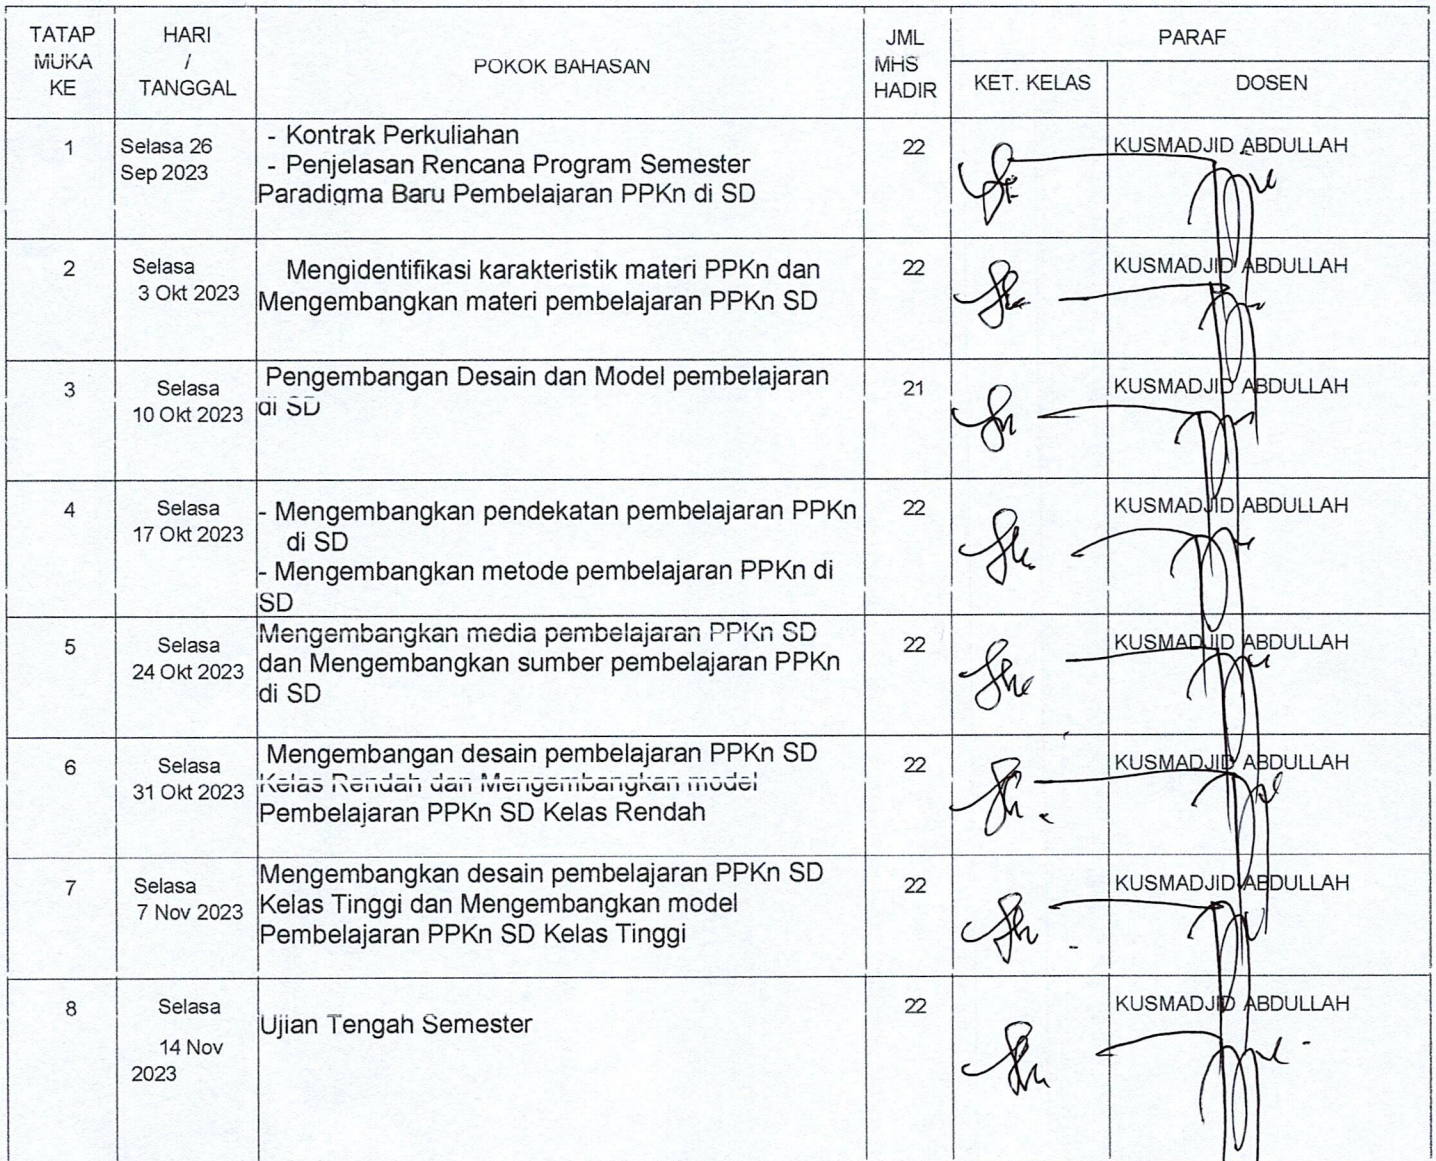 TATAP
MUKA
KE
HARI
/
TANGGAL
POKOK BAHASAN
JML
MHS
HADIR
PARAF
KET. KELAS
DOSEN
1
Selasa 26
Sep 2023
- Kontrak Perkuliahan
- Penjelasan Rencana Program Semester
Paradigma Baru Pembelajaran PPKn di SD
22
KUSMADJID ABDULLAH
2
Selasa
3 Okt 2023
Mengidentifikasi karakteristik materi PPKn dan
Mengembangkan materi pembelajaran PPKn SD
22
KUSMADJID ABDULLAH
3
Selasa
10 Okt 2023
Pengembangan Desain dan Model pembelajaran
di SD
21
KUSMADJID ABDULLAH
4
Selasa
17 Okt 2023
- Mengembangkan pendekatan pembelajaran PPKn
di SD
- Mengembangkan metode pembelajaran PPKn di
SD
22
KUSMADJID ABDULLAH
5
Selasa
24 Okt 2023
Mengembangkan media pembelajaran PPKn SD
dan Mengembangkan sumber pembelajaran PPKn
di SD
22
KUSMADJID ABDULLAH
6
Selasa
31 Okt 2023
Mengembangan desain pembelajaran PPKn SD
Kelas Rendah dan Mengembangkan model
Pembelajaran PPKn SD Kelas Rendah
22
KUSMADJID ABDULLAH
7
Selasa
7 Nov 2023
Mengembangkan desain pembelajaran PPKn SD
Kelas Tinggi dan Mengembangkan model
Pembelajaran PPKn SD Kelas Tinggi
22
KUSMADJID ABDULLAH
8
Selasa
14 Nov
2023
Ujian Tengah Semester
22
KUSMADJID ABDULLAH